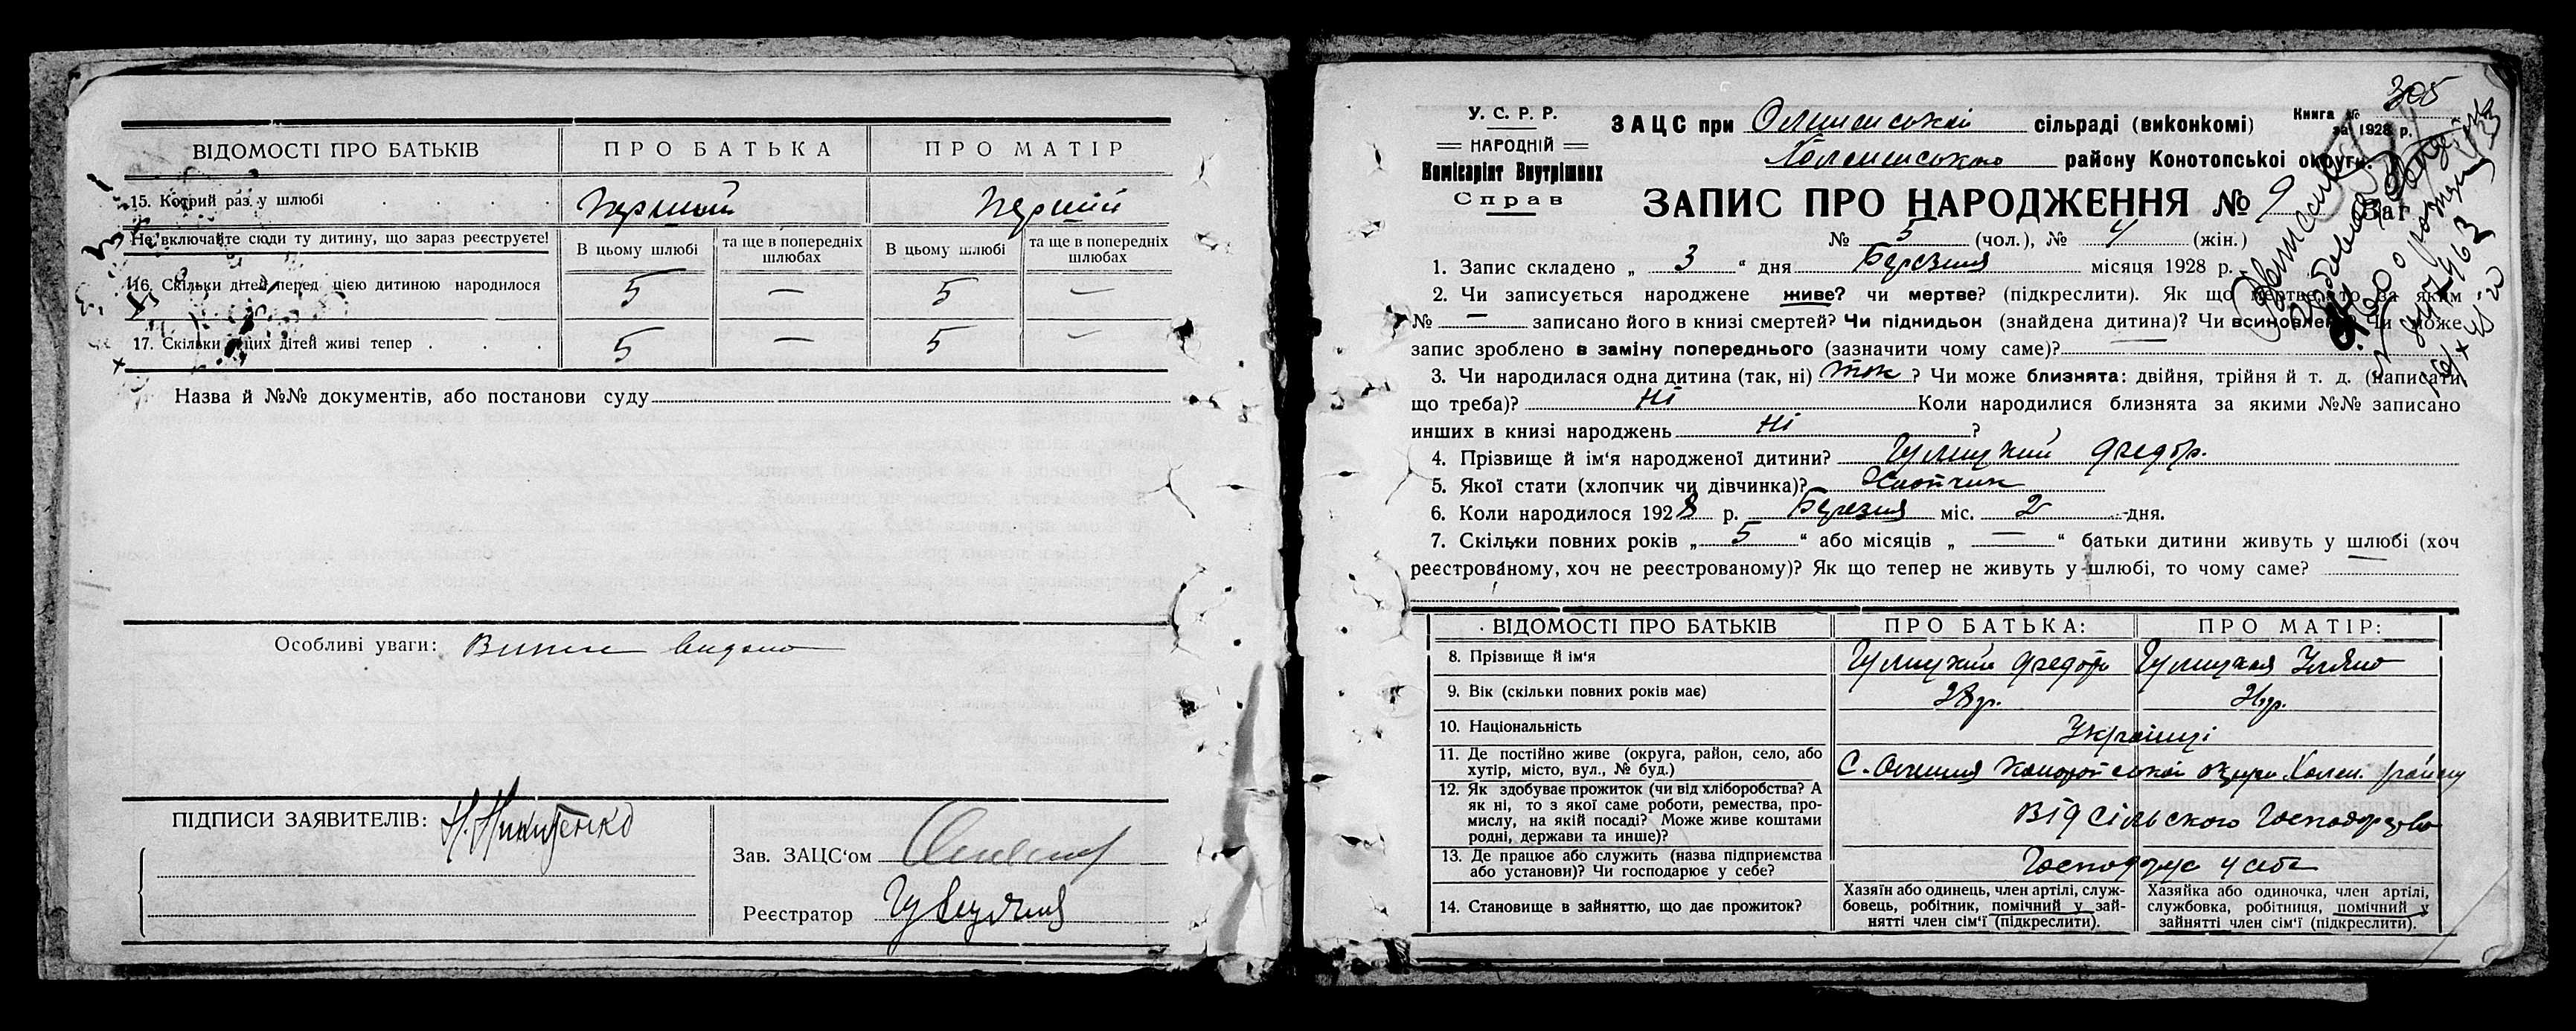 ВІДОМОСТІ ПРО БАТЬКІВ ПРО БАТЬКА ПРО МАТІР
15. Котрий раз у шлюбі Перший Перший
Не включайте сюди ту дитину, що зараз реєструєте! В цьому шлюбі та ще в попередніх шлюбах В цьому шлюбі та ще в попередніх шлюбах
16. Скільки дітей перед цією дитиною народилося 5 — 5 —
17. Скільки з цих дітей живі тепер 5 — 5 —
Назва й №№ документів, або постанови суду
Особливі уваги: видано
ПІДПИСИ ЗАЯВИТЕЛІВ: Н. Никитенко
Зав. ЗАЦС‘ом
Реєстратор
305
У. С. Р. Р.
НАРОДНІЙ
Комісаріят Внутрішних
Справ
ЗАЦС при сільраді (виконкомі)
Книга №
за 1928 р.
району Конотопської округи.
ЗАПИС ПРО НАРОДЖЕННЯ № 9 Заг
№ 5 (чол.), № 4 (жін.)
1. Запис складено „ 3 “ дня Березня місяця 1928 р.
2. Чи записується народжене живе? чи мертве? (підкреслити). Як що мертве, то за яким
№ — записано його в книзі смертей? Чи піднидьок (знайдена дитина)? Чи всиновлен ? Чи може
запис зроблено в заміну попереднього (зазначити чому саме)?
3. Чи народилася одна дитина (так, ні) так ? Чи може близнята: двійня, трійня й т. д. (написати
що треба)? Ні Коли народилися близнята за якими №№ записано
инших в книзі народжень Ні ?
4. Прізвище й ім‘я народженої дитини? Федір
5. Якої стати (хлопчик чи дівчинка)? Хлопчик
6. Коли народилося 1928 р. Березня міс. 2 дня.
7. Скільки повних років „ 5 “ або місяців „ — “ батьки дитини живуть у шлюбі (хоч
реєстрованому, хоч не реєстрованому)? Як що тепер не живуть у шлюбі, то чому саме?
ВІДОМОСТІ ПРО БАТЬКІВ ПРО БАТЬКА: ПРО МАТІР:
8. Прізвище й ім‘я Федор Уляна
9. Вік (скільки повних років має) 28 р. 26 р.
10. Національність Українці
11. Де постійно живе (округа, район, село, або
хутір, місто, вул., № буд.) С. району
12. Як здобуває прожиток (чи від хліборобства? А
як ні, то з якої саме роботи, ремества, про-
мислу, на якій посаді? Може живе коштами
родні, держави та инше)? Від сільського Господарства
13. Де працює або служить (назва підприємства
або установи)? Чи господарює у себе? Господарює у себе
14. Становище в зайняттю, що дає прожиток?
Хазяїн або одинець, член артілі, служ-
бовець, робітник, помічний у зай-
нятті член сім‘ї (підкреслити).
Хазяйка або одиночка, член артілі,
службовка, робітниця, помічний у
зайнятті член сім‘ї (підкреслити).